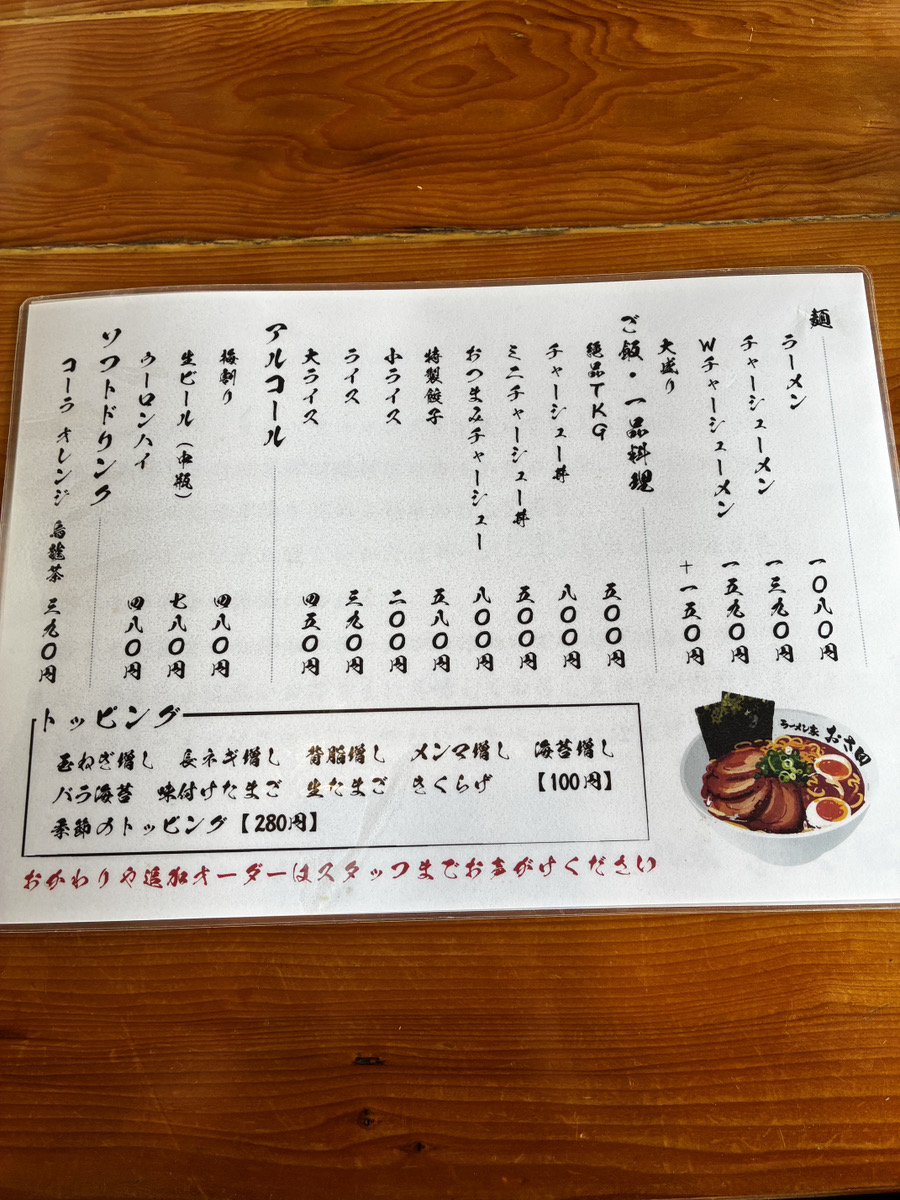 麺
ラーメン 一〇八〇円
チャーシューメン 一三九〇円
Wチャーシューメン 一五九〇円
大盛り +一五〇円
ご飯・一品料理
絶品TKG 五〇〇円
チャーシュー丼 八〇〇円
ミニチャーシュー丼 五〇〇円
おつまみチャーシュー 八〇〇円
特製餃子 五八〇円
小ライス 二〇〇円
ライス 三九〇円
大ライス 四五〇円
アルコール
梅割り 四八〇円
生ビール(中瓶) 七八〇円
ウーロンハイ 四八〇円
ソフトドリンク
コーラ オレンジ 烏龍茶 三九〇円
トッピング
玉ねぎ増し 長ネギ増し 背脂増し メンマ増し 海苔増し
バラ海苔 味付けたまご 生たまご きくらげ 【100円】
季節のトッピング【280円】
おかわりや追加オーダーはスタッフまでお声がけください
ラーメン家 おさ田